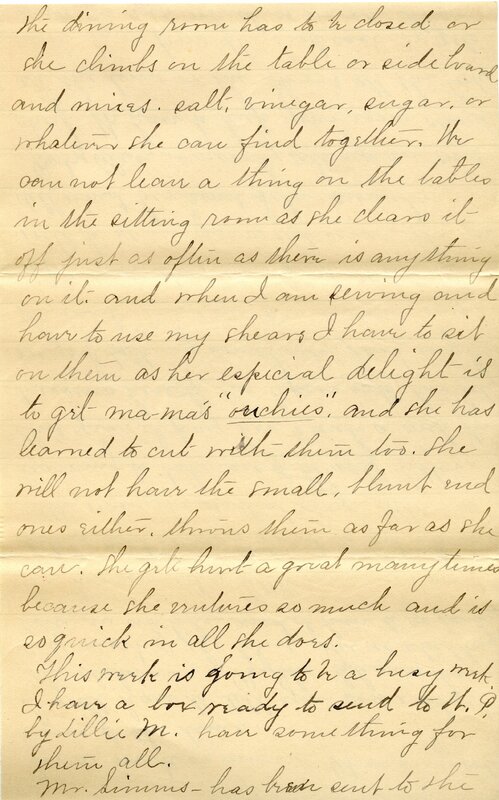 the dining room has to be closed or
she climbs on the table or sideboard
and mixes. salt, vinegar, sugar, or
whatever she can find together. We
can not leave a thing on the tables
in the sitting room as she clears it
off just as often as there is anything
on it. and when I am sewing and
have to use my shears I have to sit
on them as her especial delight is
to get ma-ma's "ouchies". and she has
learned to cut with them too. She
will not have the small, blunt end
ones either. throws them as far as she
can. She gets hurt a great many times
because she ventures so much and is
so quick in all she does.
This week is going to be a busy week
I have a box ready to send to N. P.
by Lillie M. have something for
them all.
Mr. Simms - has been sent to the